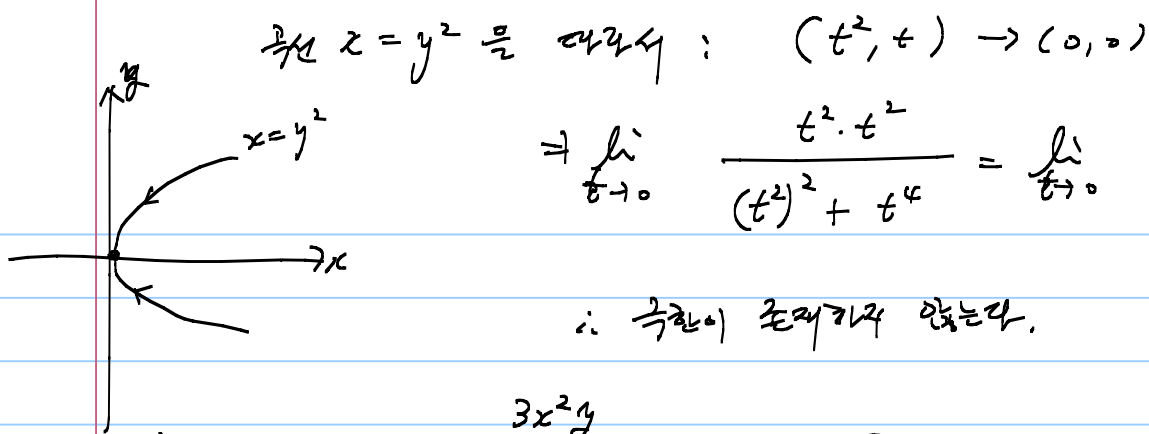 곡선 x = y² 을 따라서 : (t², t) → (0, 0)
y
x = y²
⇒ lim t→0 t²·t² / (t²)² + t⁴ = lim t→0
x
∴ 극한이 존재하지 않는다.
3x²y